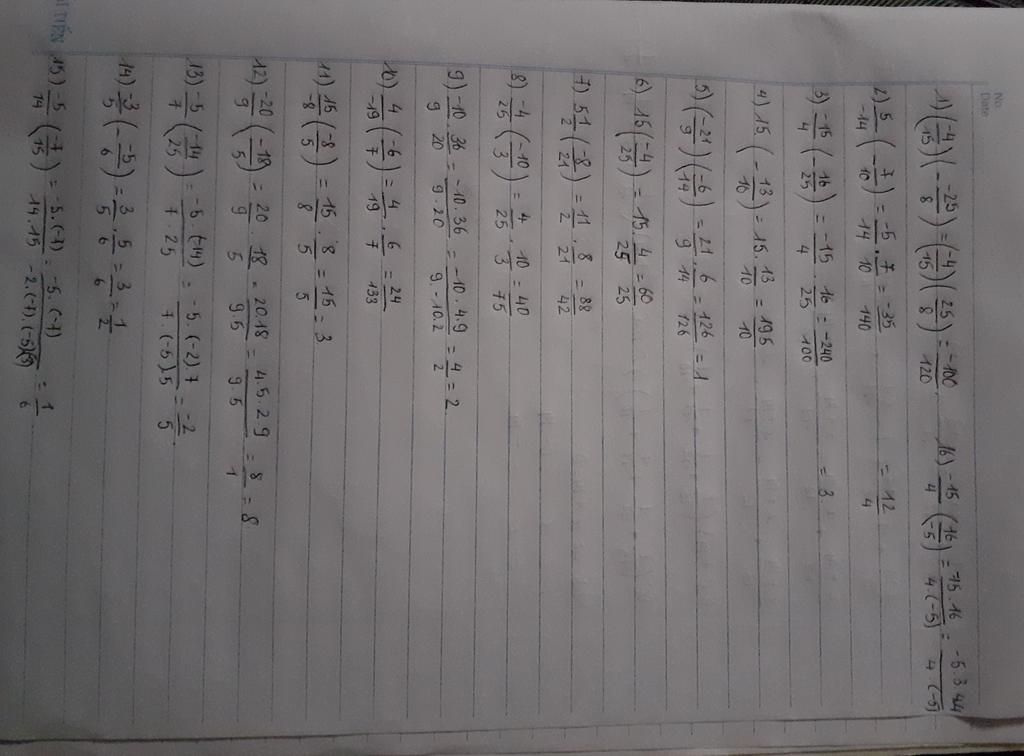 No.
Date
1) (-4/15)(- -25/8) = (-4/15)(25/8) = -100/120
2) 5/-14 (- 7/10) = -5/14 . 7/10 = -35/140
3) -15/4 (- 16/25) = -15/4 . 16/25 = -240/100
4) 15 (- 13/10) = 15.13/10 = 195/10
5) (-21/9)(-6/14) = 21/9 . 6/14 = 126/126 = 1
6) 15 (-4/25) = 15.4/25 = 60/25
7) 5 1/2 (-8/21) = 11/2 . 8/21 = 88/42
8) -4/25 (-10/3) = 4/25 . 10/3 = 40/75
9) -10/9 36/20 = -10.36/9.20 = -10.4.9/9.-10.2 = 4/2 = 2
10) 4/-19 (-6/7) = 4/19 . 6/7 = 24/133
11) 15/-8 (-8/5) = 15/8 . 8/5 = 15/5 = 3
12) -20/9 (-18/5) = 20/9 . 18/5 = 20.18/9.5 = 4.5.2.9/9.5 = 8/1 = 8
13) -5/7 (-14/25) = -5.(-14)/7.25 = -5.(-2)7/7.(-5)5 = -2/5
14) -3/5 (- -5/6) = 3/5 . 5/6 = 3/6 = 1/2
15) -5/14 (-7/15) = -5.(-7)/14.15 = -5.(-7)/-2.(-7).(-5)(3) = 1/6
16) -15/4 (16/-5) = 15.16/4(-5) -5.3.44/4.(-5)
= 12/4
= 3
TIẾN